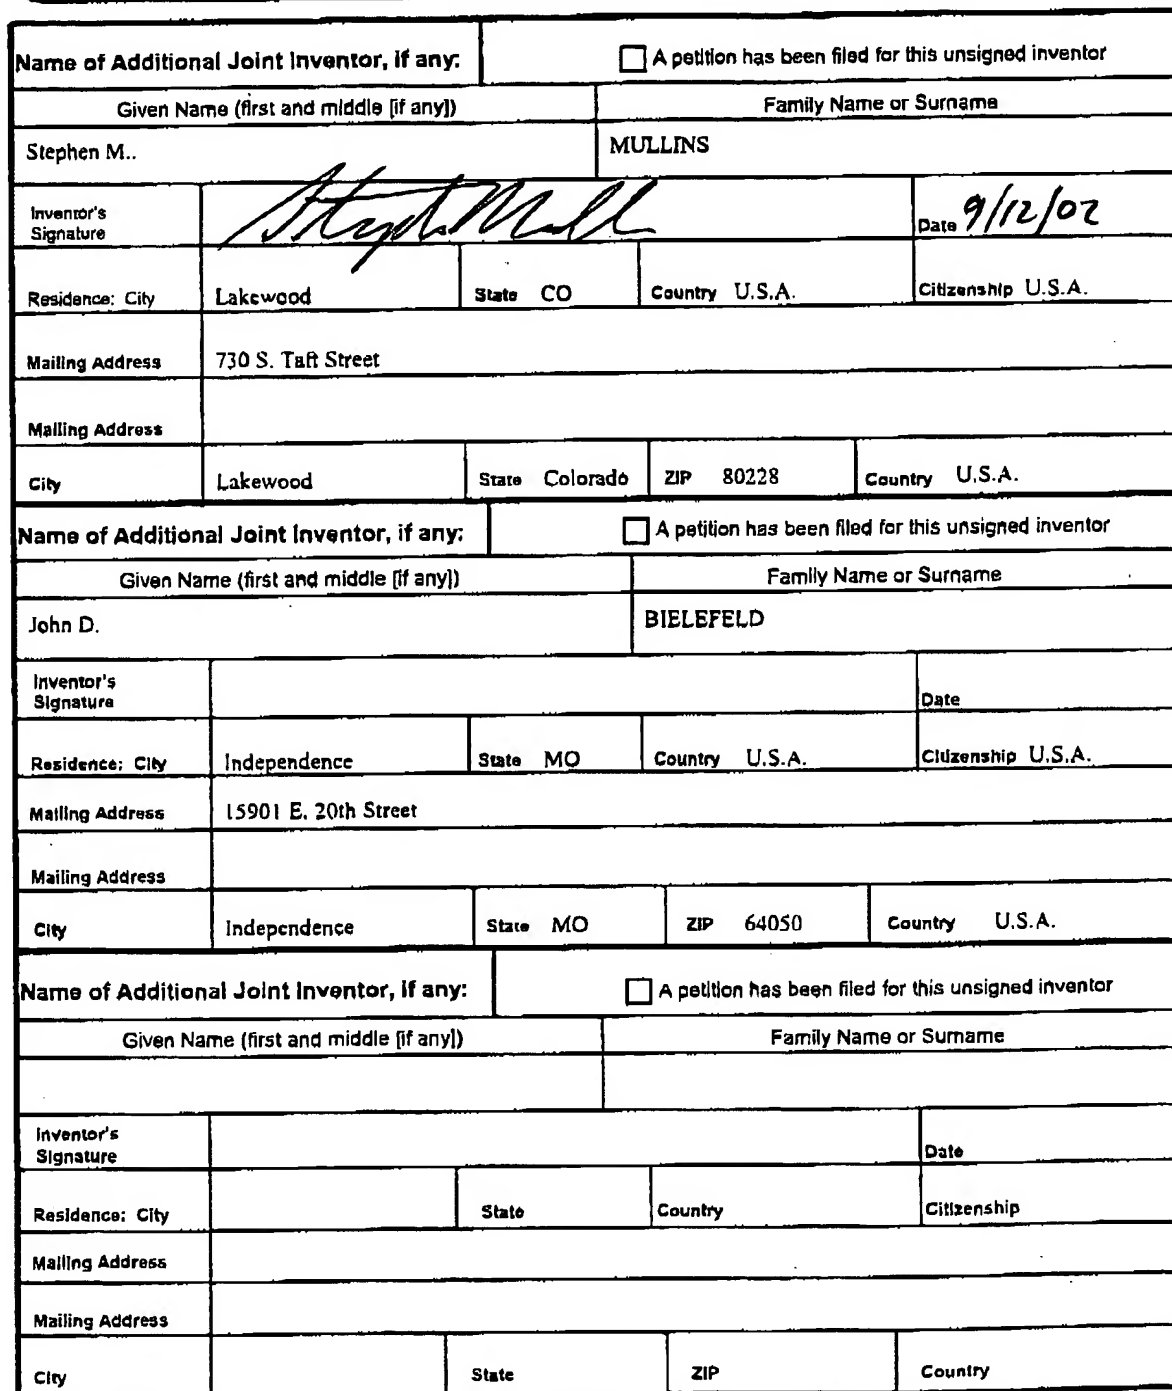 Name of Additional Joint Inventor, if any: A petition has been filed for this unsigned inventor
Given Name (first and middle [if any]) Family Name or Surname
Stephen M.. MULLINS
Inventor's
Signature Stephen Mull Date 9/12/02
Residence: City Lakewood State CO Country U.S.A. Citizenship U.S.A.
Mailing Address 730 S. Taft Street
Mailing Address
City Lakewood State Colorado ZIP 80228 Country U.S.A.
Name of Additional Joint Inventor, if any: A petition has been filed for this unsigned inventor
Given Name (first and middle [if any]) Family Name or Surname
John D. BIELEFELD
Inventor's
Signature Date
Residence: City Independence State MO Country U.S.A. Citizenship U.S.A.
Mailing Address 15901 E. 20th Street
Mailing Address
City Independence State MO ZIP 64050 Country U.S.A.
Name of Additional Joint Inventor, if any: A petition has been filed for this unsigned inventor
Given Name (first and middle [if any]) Family Name or Surname
Inventor's
Signature Date
Residence: City State Country Citizenship
Mailing Address
Mailing Address
City State ZIP Country